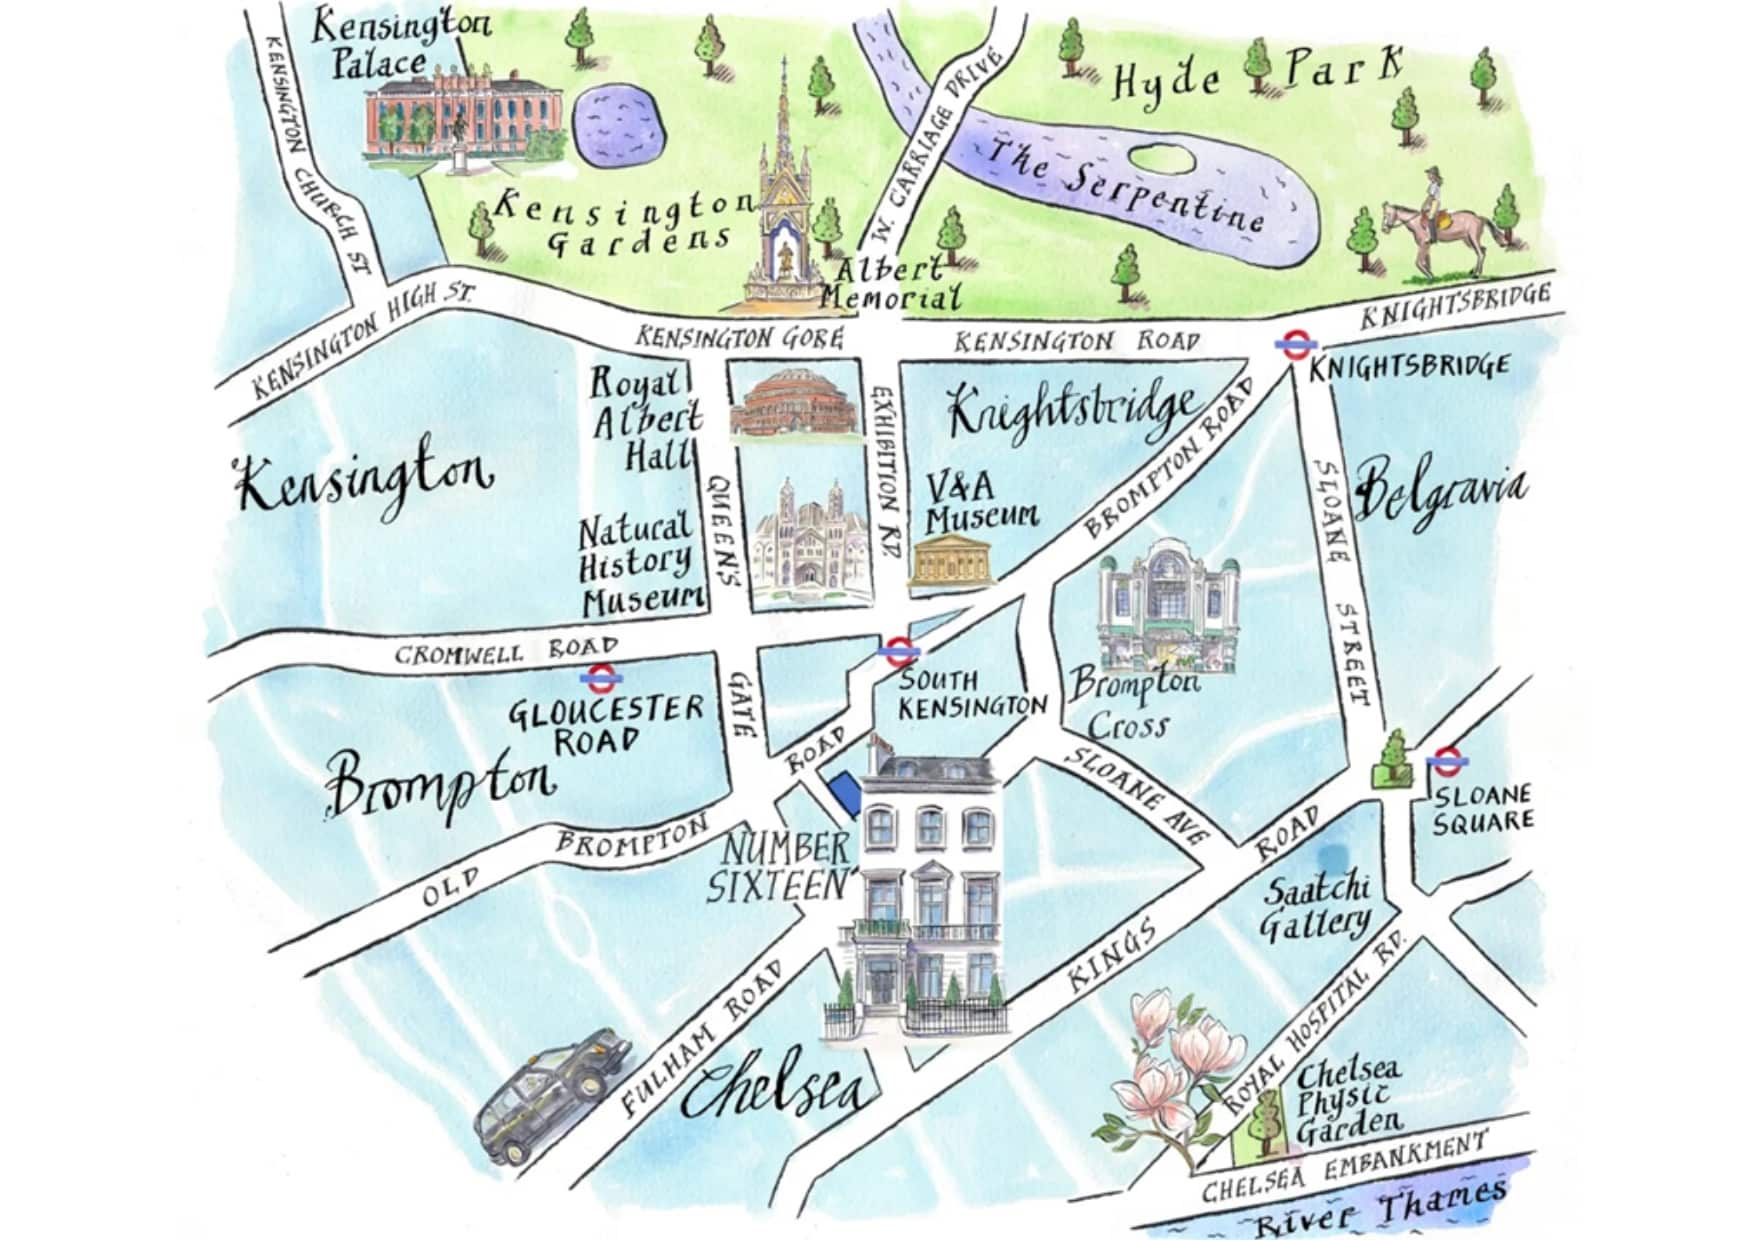 Kensington
Palace
KENSINGTON CHURCH ST
Hyde Park
W. CARRIAGE DRIVE
The Serpentine
Kensington
Gardens
Albert
Memorial
KENSINGTON HIGH ST.
KENSINGTON GORE
KENSINGTON ROAD
KNIGHTSBRIDGE
KNIGHTSBRIDGE
Royal
Albert
Hall
EXHIBITION RD.
Knightsbridge
BROMPTON ROAD
Kensington
QUEEN'S
GATE
V&A
Museum
SLOANE STREET
Belgravia
Natural
History
Museum
CROMWELL ROAD
GLOUCESTER
ROAD
SOUTH
KENSINGTON
Brompton
Cross
Brompton
OLD BROMPTON ROAD
SLOANE AVE
SLOANE
SQUARE
NUMBER
SIXTEEN
KINGS ROAD
Saatchi
Gallery
FULHAM ROAD
Chelsea
ROYAL HOSPITAL RD.
Chelsea
Physic
Garden
CHELSEA EMBANKMENT
River Thames